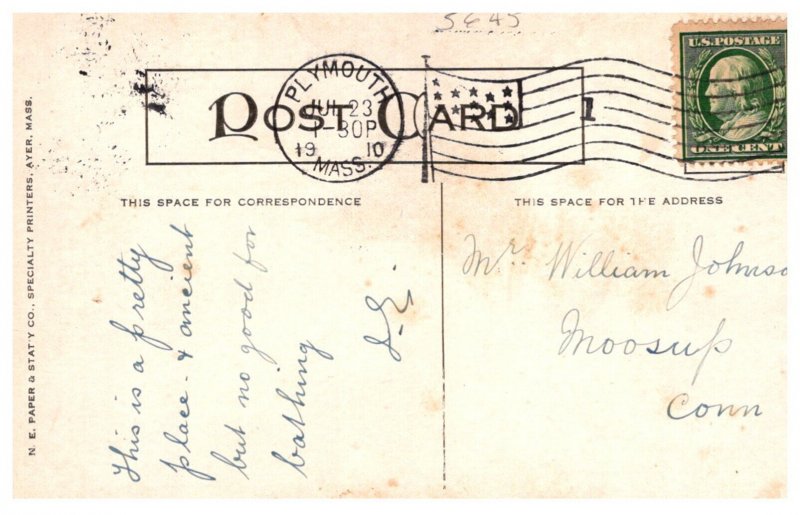 5645
U.S. POSTAGE
ONE CENT
PLYMOUTH
JUL 23
1-30P
19 10
MASS.
1
POST CARD
THIS SPACE FOR CORRESPONDENCE
THIS SPACE FOR THE ADDRESS
This is a pretty
place - & ancient
but no good for
bathing
Mr. William Johnso
Moosup
Conn
N. E. PAPER & STAT'Y CO., SPECIALTY PRINTERS, AYER, MASS.